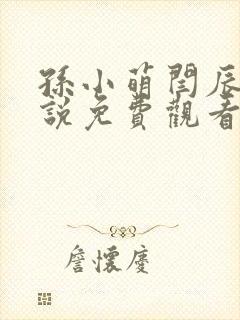 孫小萌閆辰
說免費觀看
詹懷慶